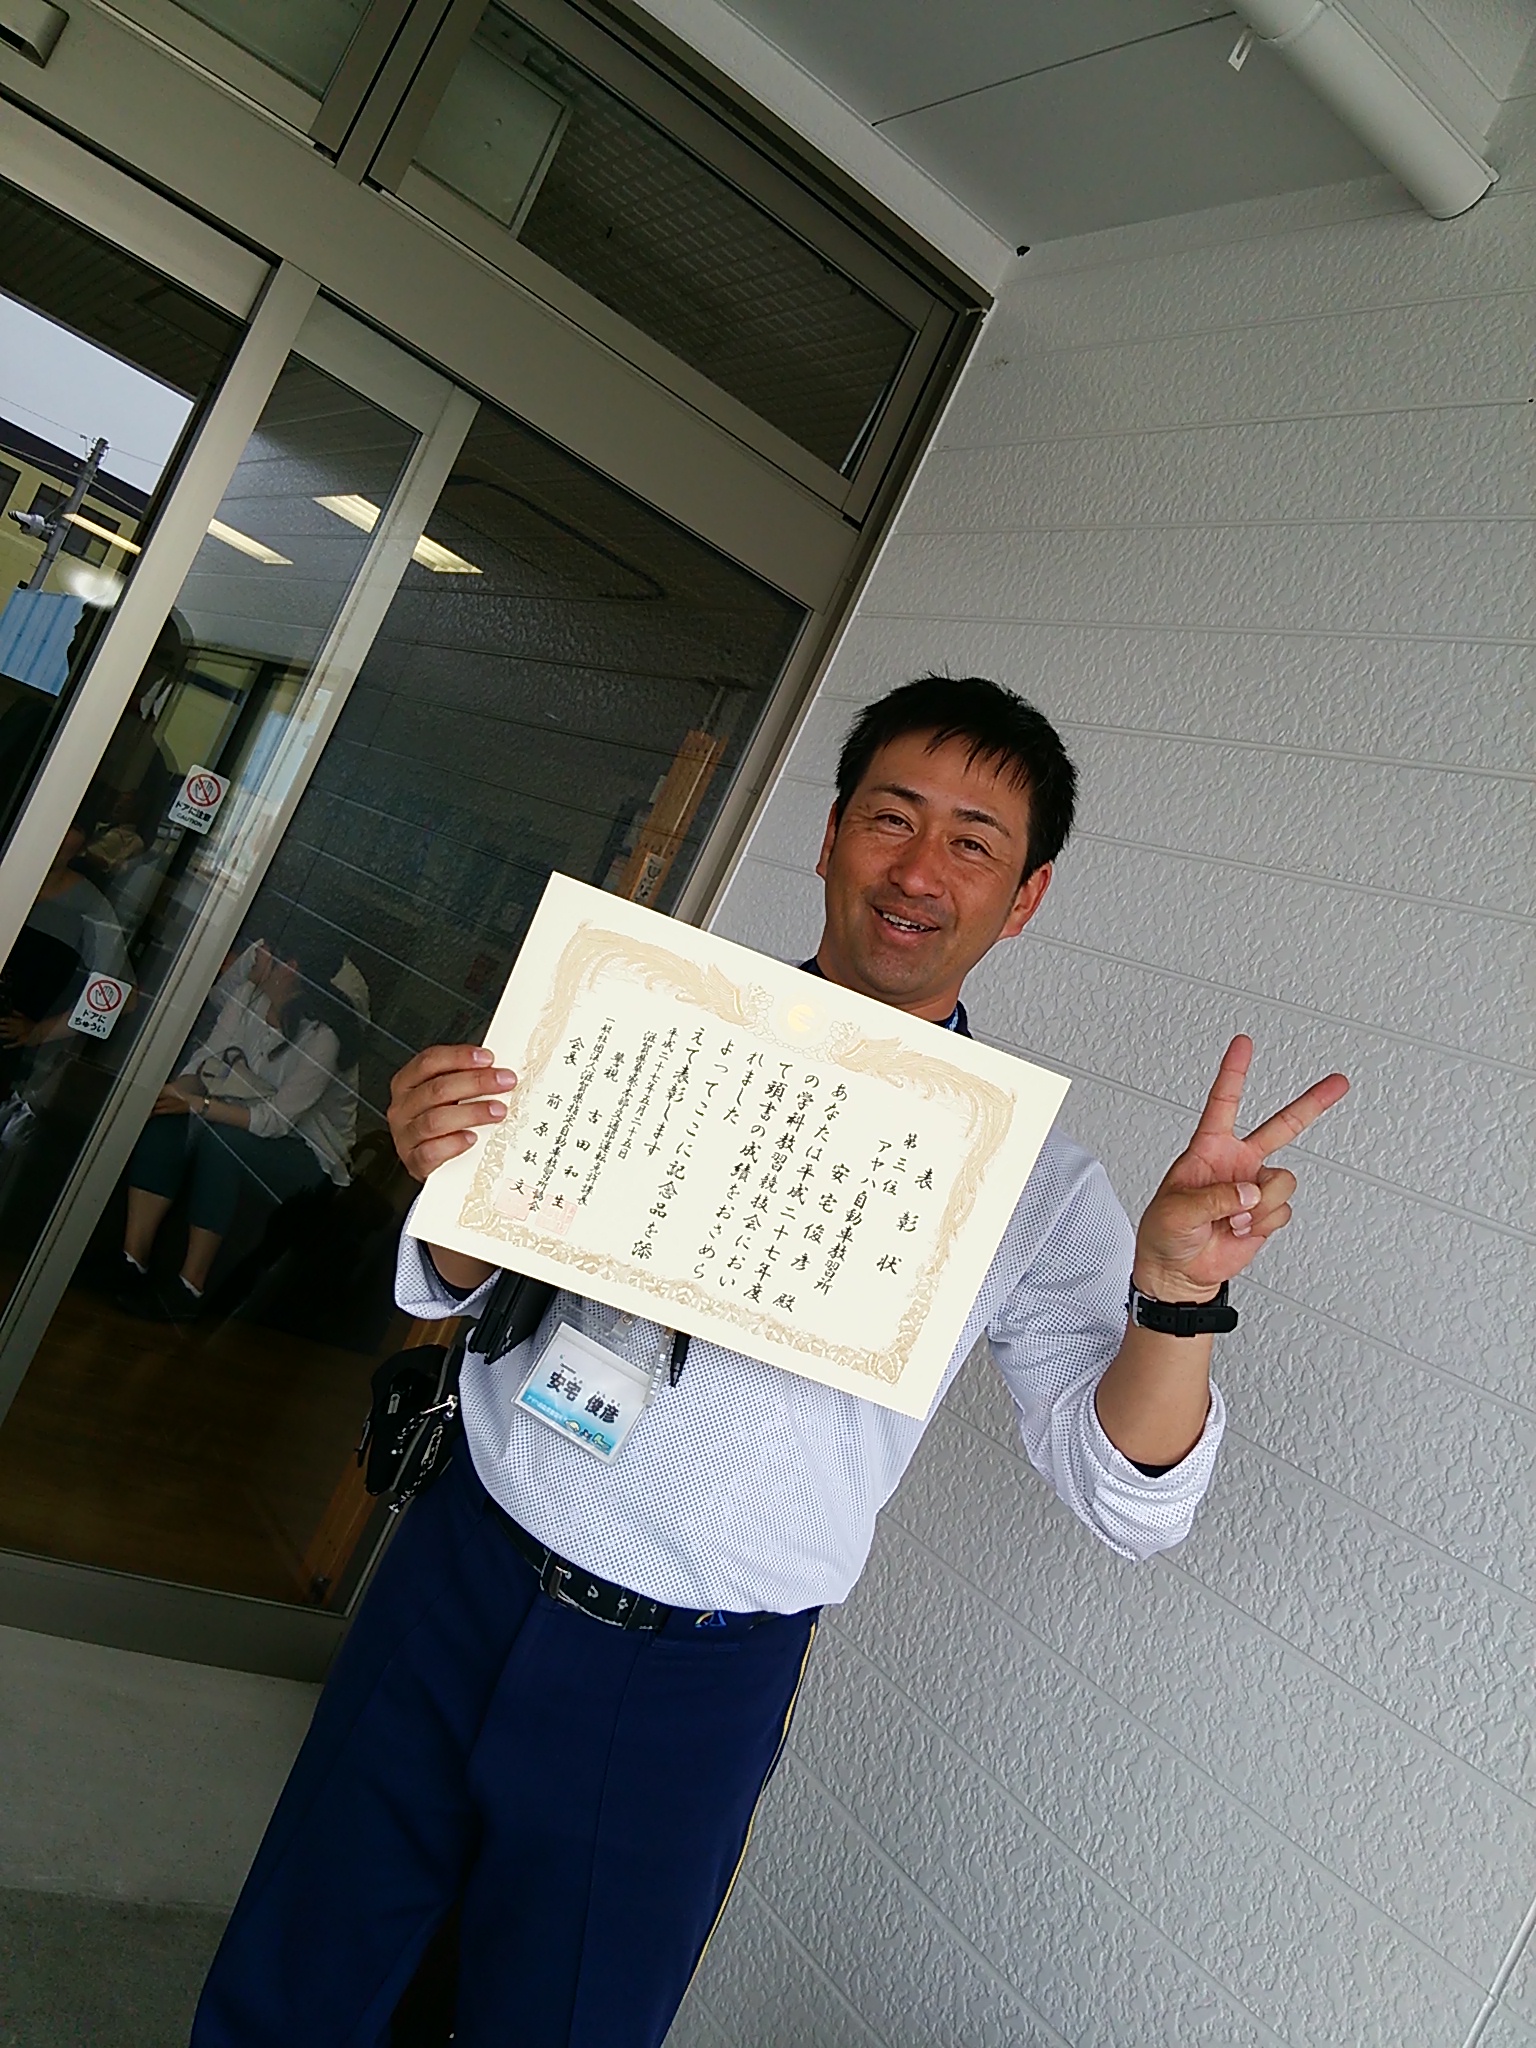 表彰状
第三位
アヤハ自動車教習所
安宅俊彦 殿
あなたは平成二十七年度
の学科教習競技会におい
て頭書の成績をおさめら
れました
よってここに記念品を添
えて表彰します
平成二十七年五月二十五日
滋賀県警察本部交通部運転免許課長
警視 古田和生
一般社団法人滋賀県指定自動車教習所協会
会長 前原敏文
安宅 俊彦
ドアに注意
CAUTION
ドアに
ちゅうい